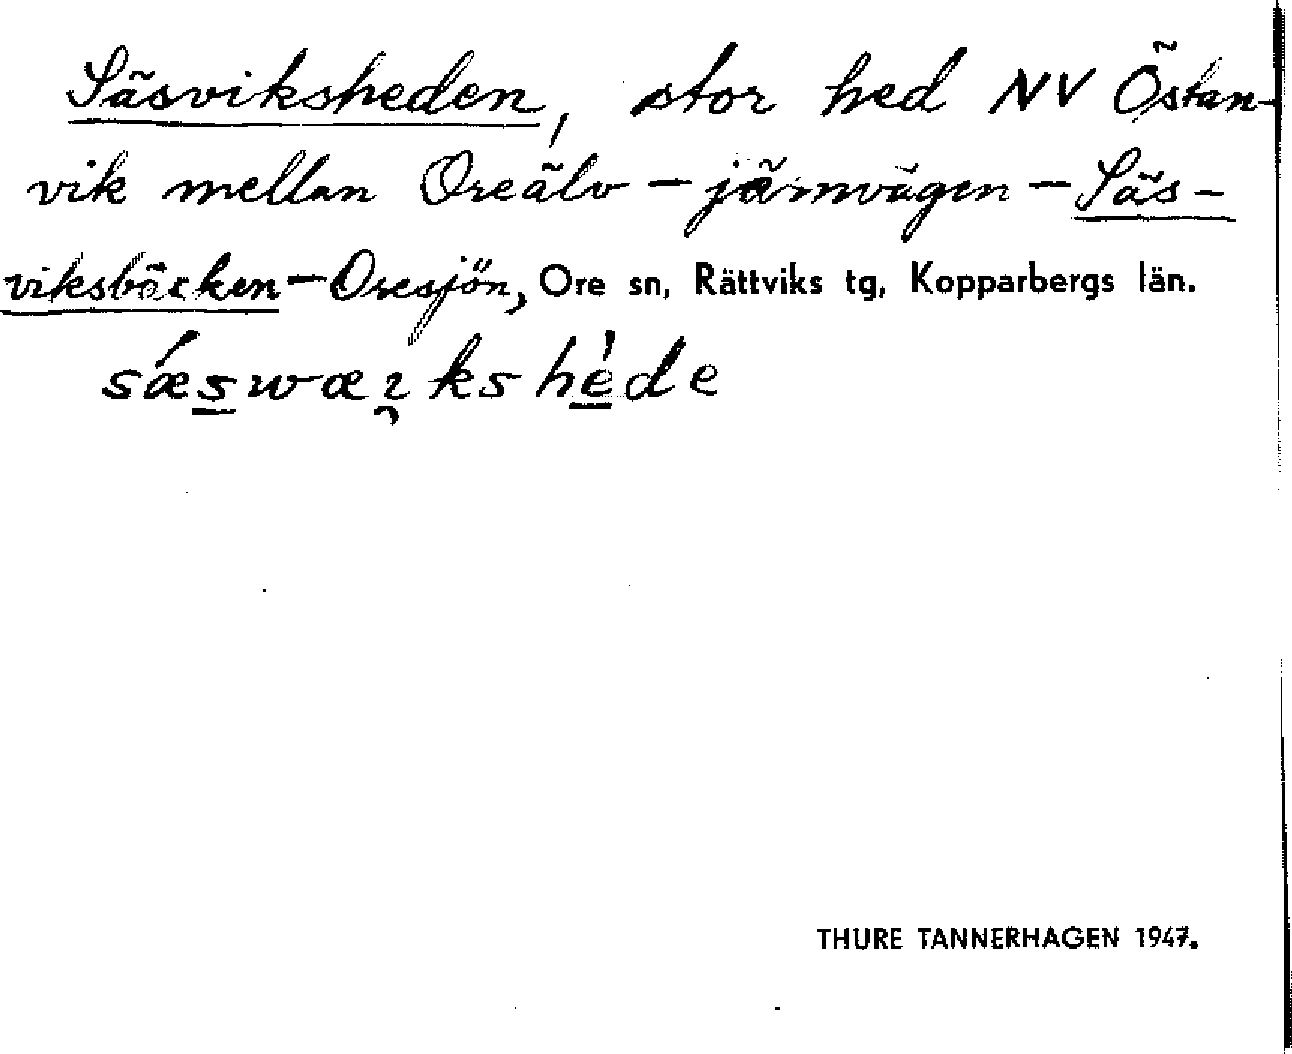 Säsviksheden, stor hed NV Östan-
vik mellan Oreälv – järnvägen – Säs-
viksbäcken – Oresjön, Ore sn, Rättviks tg, Kopparbergs län.
sǽswæɪ̯kshède
THURE TANNERHAGEN 1947.